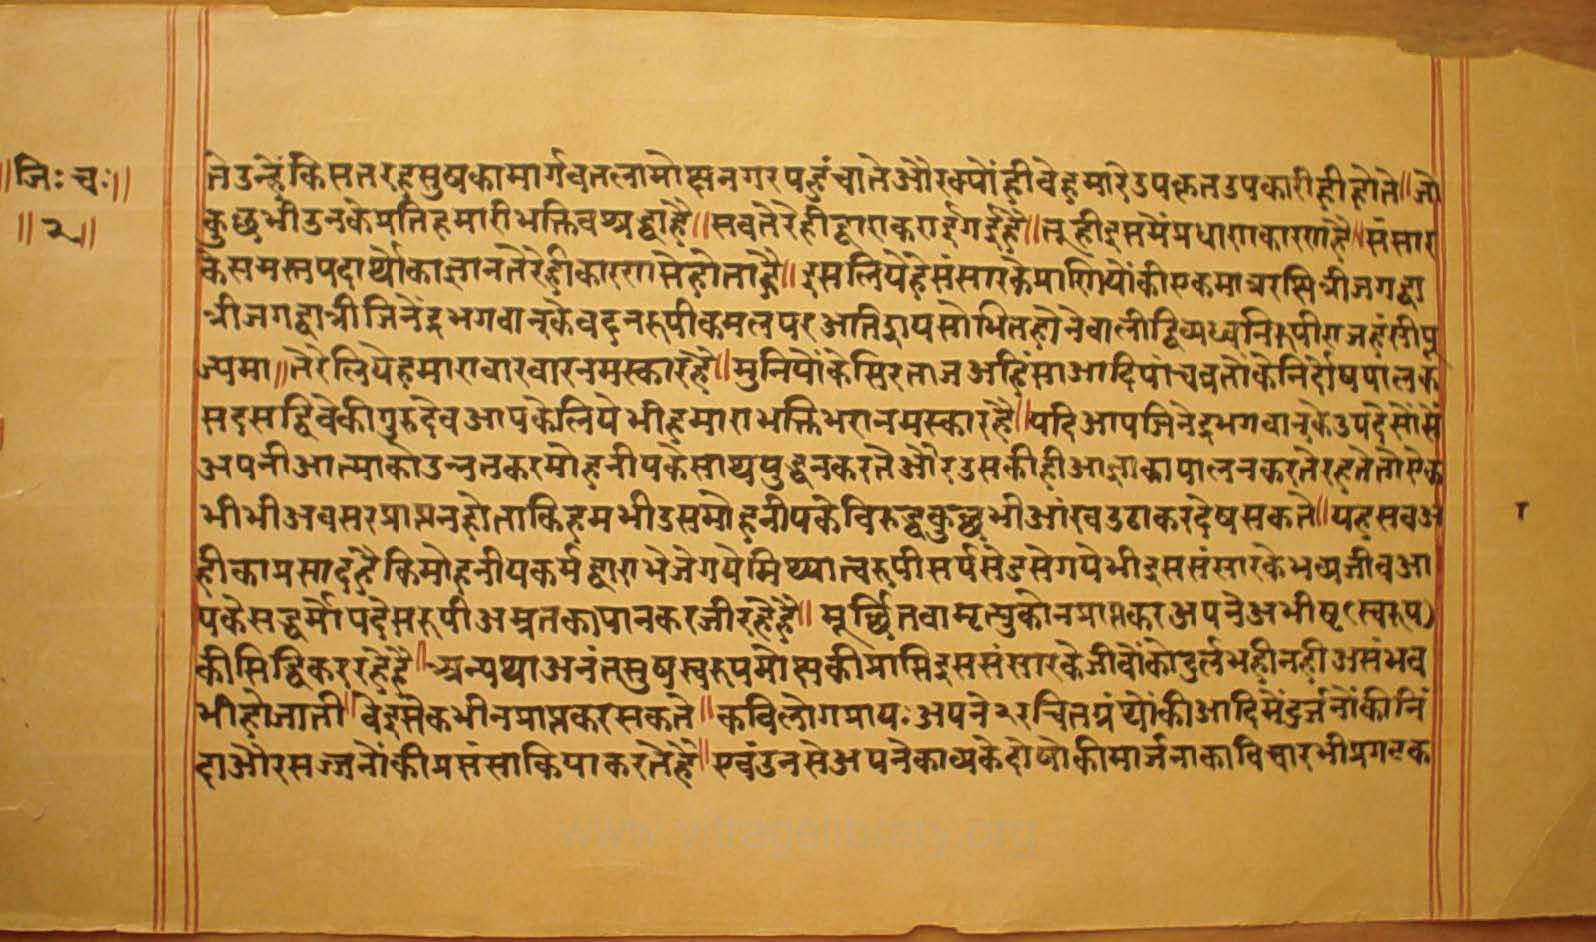 ॥जिः चः॥
॥२॥
ते उन्हें किस तरह सुष का मार्ग वतला मोक्ष नगर पहुंचाते और क्यों ही वे हमारे उपकृत उपकारी ही होते॥ जो
कुछ भी उनके प्रति हमारी भक्ति व श्रद्धा है॥ सव तेरे ही द्वारा कराई गई है॥ तू ही इसमें प्रधारण कारण है॥ संसार
के समस्त पदार्थों का ज्ञान तेरे ही कारण से होता है॥ इसलिये हे संसार के प्राणियों की एकमात्र रक्षित्री जगद्धा
त्री जगद्धात्री जिनेंद्र भगवान के वदन रूपी कमल पर अतिशय सोभित होने वाली दिव्यध्वनि रूपी राजहंसी पू
ज्य मा॥ तेरे लिये हमारा वारवार नमस्कार है॥ मुनियों के सिरताज अहिंसा आदि पांच व्रतों के निर्दोष पालक
सदसद्विवेकी गुरुदेव आपके लिये भी हमारा भक्तिभरा नमस्कार है॥ यदि आप जिनेद्र भगवान के उपदेसों सें
अपनी आत्मा को उन्नत कर मोहनीय के साथ युद्ध न करते और उसकी ही आज्ञा का पालन करते रहते तो एक
भी भी अवसर प्राप्त न होता कि हम भी उस मोहनीय के विरुद्ध कुछ भी आंख उठाकर देष सकते॥ यह सव आ
ही का प्रसाद है कि मोहनीय कर्म द्वारा भेजे गये मिथ्यात्व रूपी सर्प से डसे गये भी इस संसार के भव्य जीव आ
पके सद्धर्मोपदेस रूपी अम्रत का पान कर जी रहे है॥ मूर्छित वा मृत्यु को न प्राप्त कर अपने अभीष्ट (स्वरूप)
की सिद्धि कर रहे है॥ अन्यथा अनंत सुष स्वरूप मोक्ष की प्राप्ति इस संसार के जीवों को दुर्लभ ही नही असंभव
भी हो जाती॥ वे इसे कभी न प्राप्त कर सकते॥ कवि लोग प्रायः अपने २ रचित ग्रंथों की आदि में दुर्जनों की निं
दा और सज्जनों की प्रसंसा किया करते है॥ एवं उनसे अपने काव्य के दोषों की मार्जना का विचार भी प्रगट क
www.vitragelibrary.org